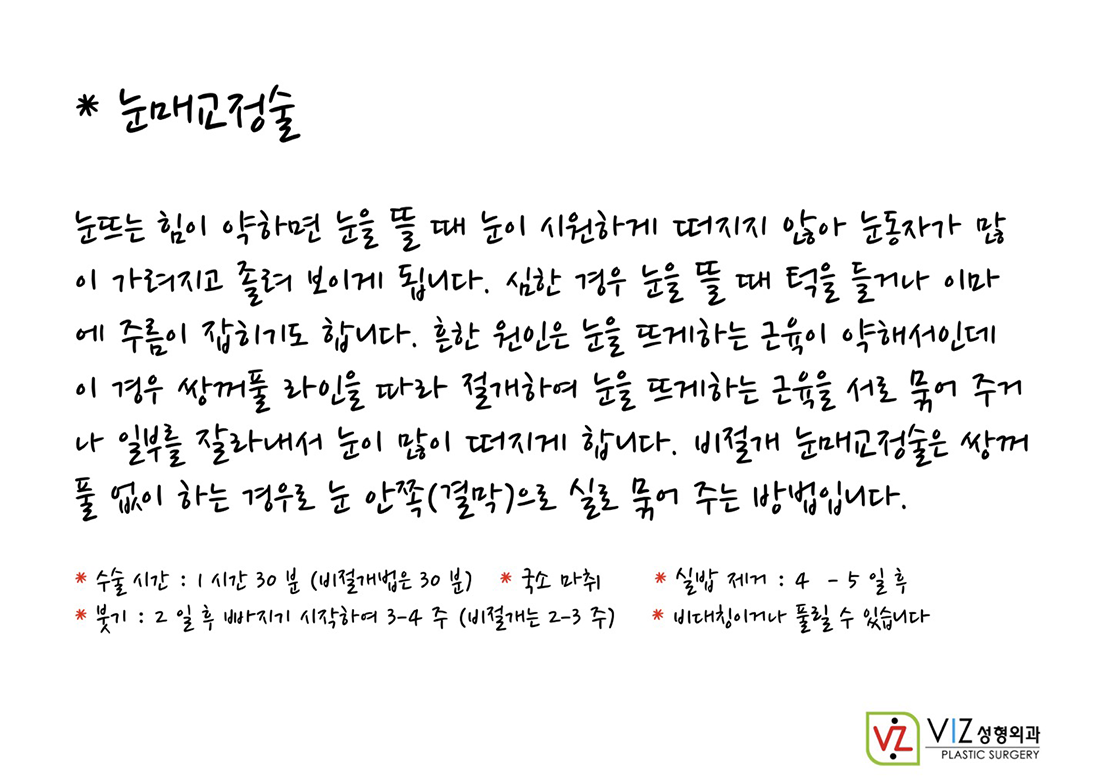 * 눈매교정술
눈뜨는 힘이 약하면 눈을 뜰 때 눈이 시원하게 떠지지 않아 눈동자가 많
이 가려지고 졸려 보이게 됩니다. 심한 경우 눈을 뜰 때 턱을 들거나 이마
에 주름이 잡히기도 합니다. 흔한 원인은 눈을 뜨게하는 근육이 약해서인데
이 경우 쌍꺼풀 라인을 따라 절개하여 눈을 뜨게하는 근육을 서로 묶어 주거
나 일부를 잘라내서 눈이 많이 떠지게 합니다. 비절개 눈매교정술은 쌍꺼
풀 없이 하는 경우로 눈 안쪽(결막)으로 실로 묶어 주는 방법입니다.
* 수술 시간 : 1 시간 30 분 (비절개법은 30 분) * 국소 마취 * 실밥 제거 : 4 - 5 일 후
* 붓기 : 2 일 후 빠지기 시작하여 3-4 주 (비절개는 2-3 주) * 비대칭이거나 풀릴 수 있습니다
VZ VIZ 성형외과
PLASTIC SURGERY